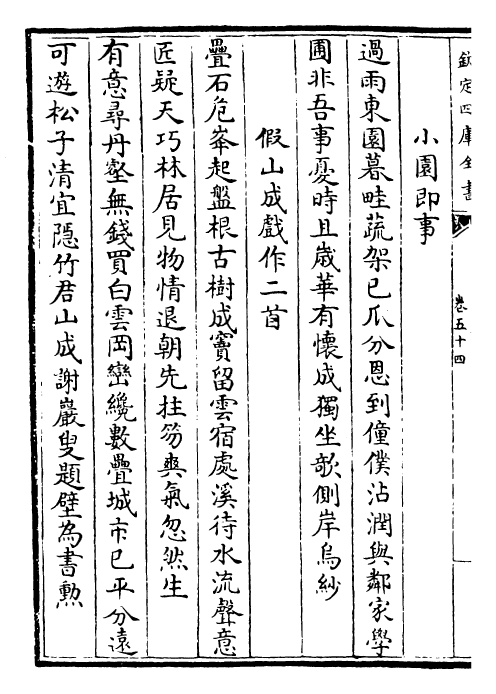 欽定四庫全書
卷五十四
小園即事
過雨東園暮畦蔬架已瓜分恩到僮僕沾潤與鄰家學
圃非吾事憂時且歲華有懷成獨坐欹側岸烏紗
假山成戲作二首
疊石危峯起盤根古樹成竇留雲宿處溪待水流聲意
匠疑天巧林居見物情退朝先拄笏爽氣忽然生
有意尋丹壑無錢買白雲岡巒纔數疊城市已平分遠
可遊松子清宜隱竹君山成謝巖叟題壁為書勲